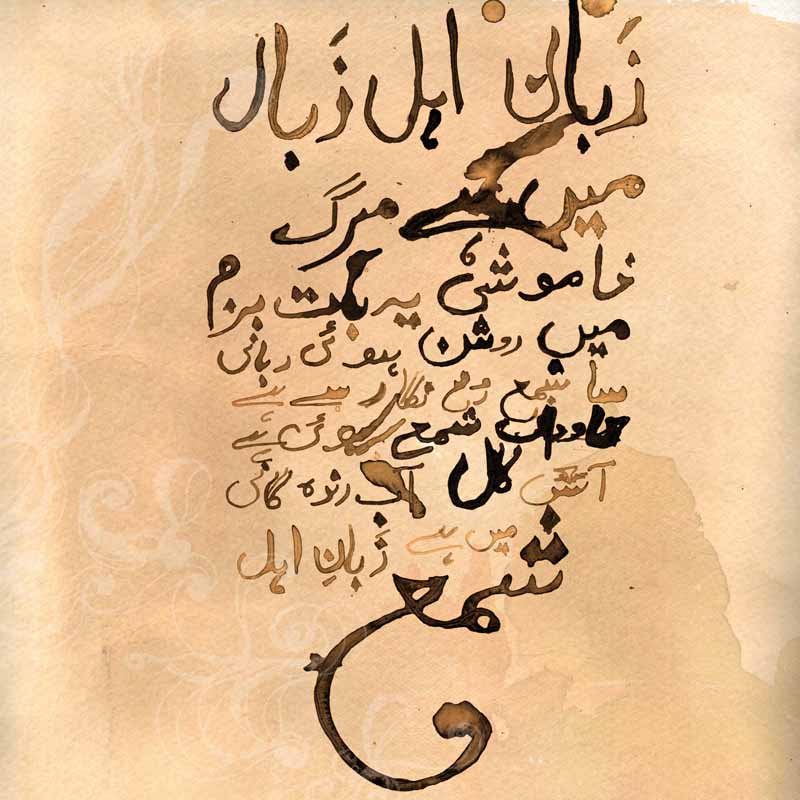 زَبان اہل زَباں
میں مرگ
خاموشی یہ بات بزم
میں روشن ہوئی زبانی
شمع نگار سے ہے
شمع ہوئی ہے
آتش گل آب زندہ گانی
میں ہے زَبانِ اہل
شمع